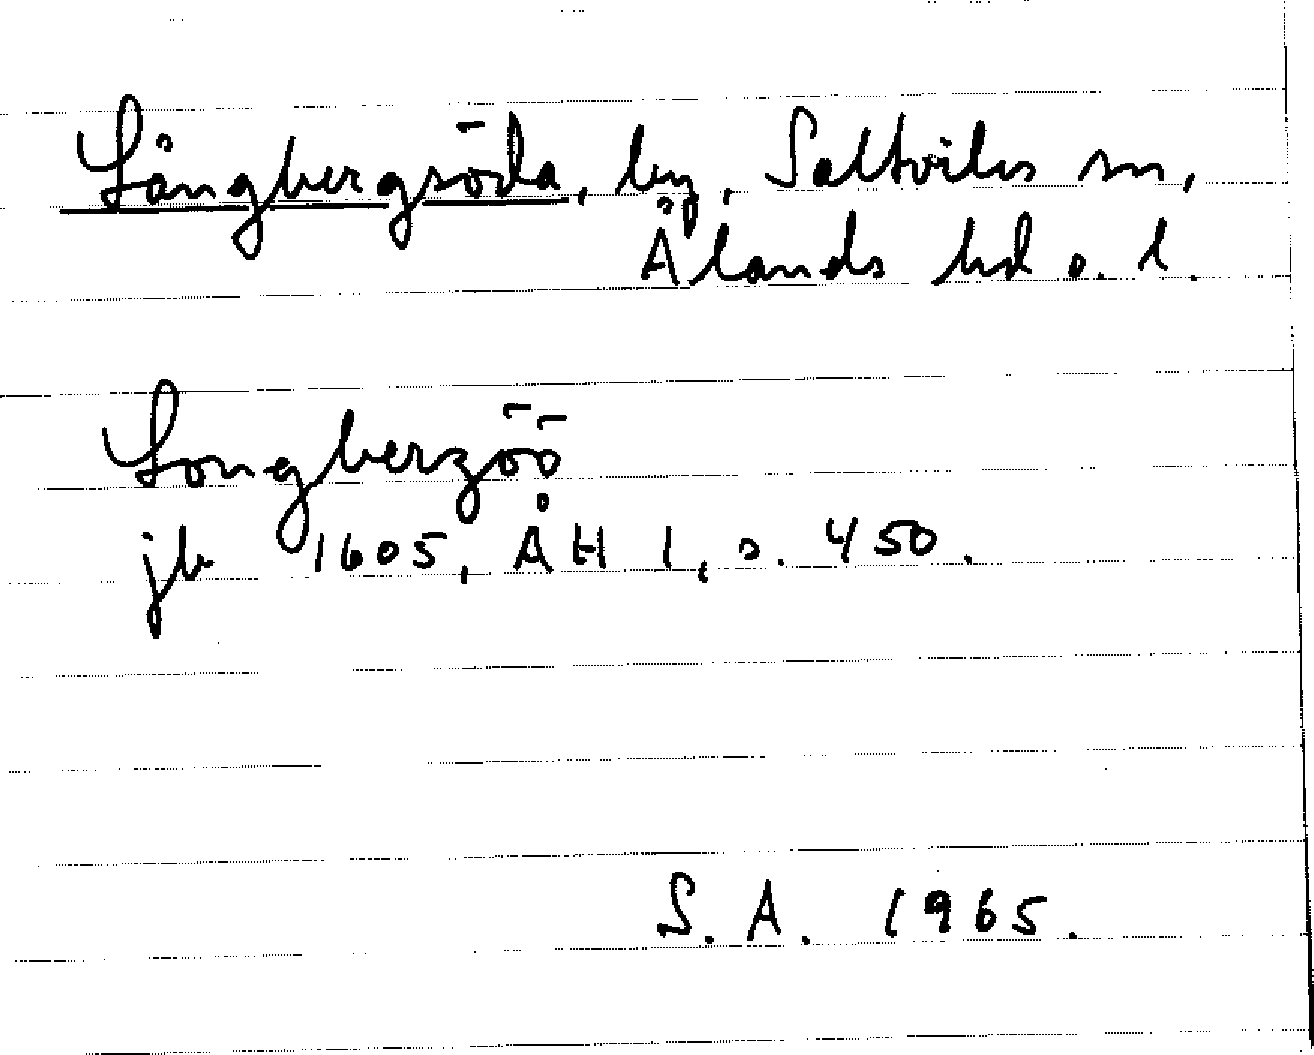 Långbergsöda, by, Saltviks sn,
Ålands hd o. l.
Longberzöö
jb 1605, ÅH 1, s. 450.
S. A. 1965.